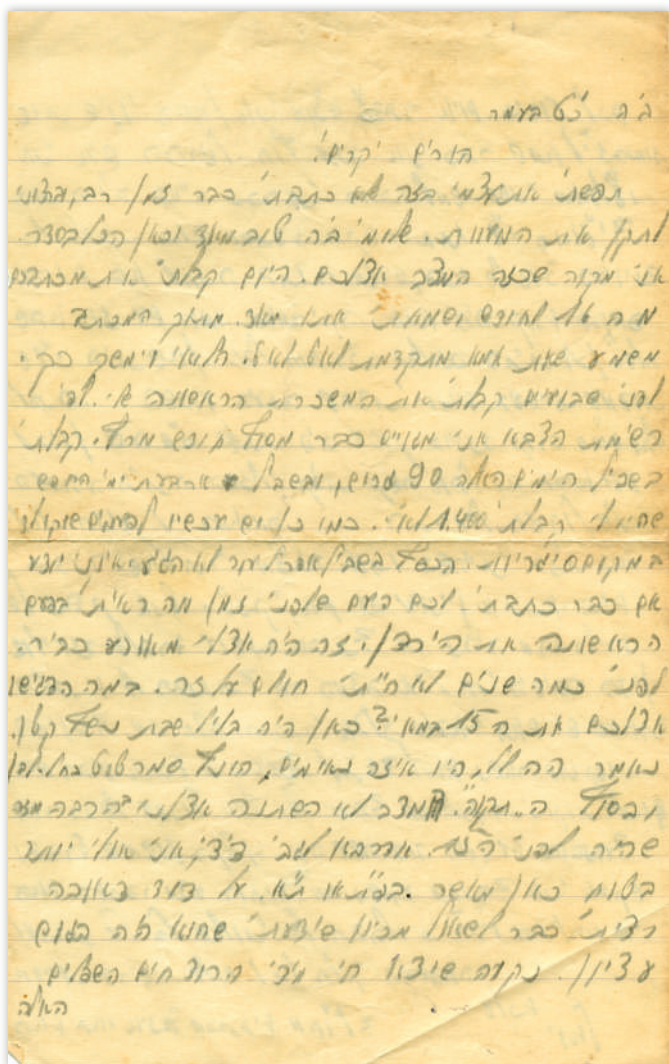 ב"ה כ"ט בעמר
הורים יקרים!
תפשתי את עצמי בזה שלא כתבתי כבר זמן רב, ורצוני
לתקן את המעוות. שלומי ב"ה טוב מאוד וכאן הכל בסדר.
אני מקוה שכזה המצב אצלכם. היום קבלתי את מכתבכם
מה 16 לחודש ושמחתי אתו מאד. מתוך המכתב
משמע שאת אמא מתקדמת לאט לאט. הלואי וימשך כך.
לפני שבועיים קבלתי את המשכרת הראשונה שלי. לפי
רשימת הצבא אני מגויס כבר מסוף חודש מרץ. קבלתי
בשביל הימים האלה 90 גרוש, ובשביל ארבעת ימי החופש
שהיו לי קבלתי 1.400 לא"י. כמו כן יש עכשיו לפעמים שוקולד
במקום סיגריות. הכסף בשביל אפריל עוד לא הגיע. אינני יודע
אם כבר כתבתי לכם פעם שלפני זמן מה ראיתי בפעם
הראשונה את הירדן. זה היה אצלי מאורע כביר.
לפני כמה שנים לא הייתי חולם על זה. במה הרגישו
אצלכם את ה 15 במאי? כאן היה בליל שבת נשף קטן.
נאמר ההלל, היו איזה נאומים, הונף סמרטוט כחל-לבן
ובסוף ה"תקוה". המצב לא השתנה אצלנו בהרבה מזה
שהיה לפני ה 15. אדרבא לגבי דידי, אני אולי יותר
בטוח כאן מאשר בת"א. על דוד
רציתי כבר לשאול מכיון שידעתי שהוא היה בגוש
עציון. נקוה שיצא חי מידי הרוצחים השפלים
האלה